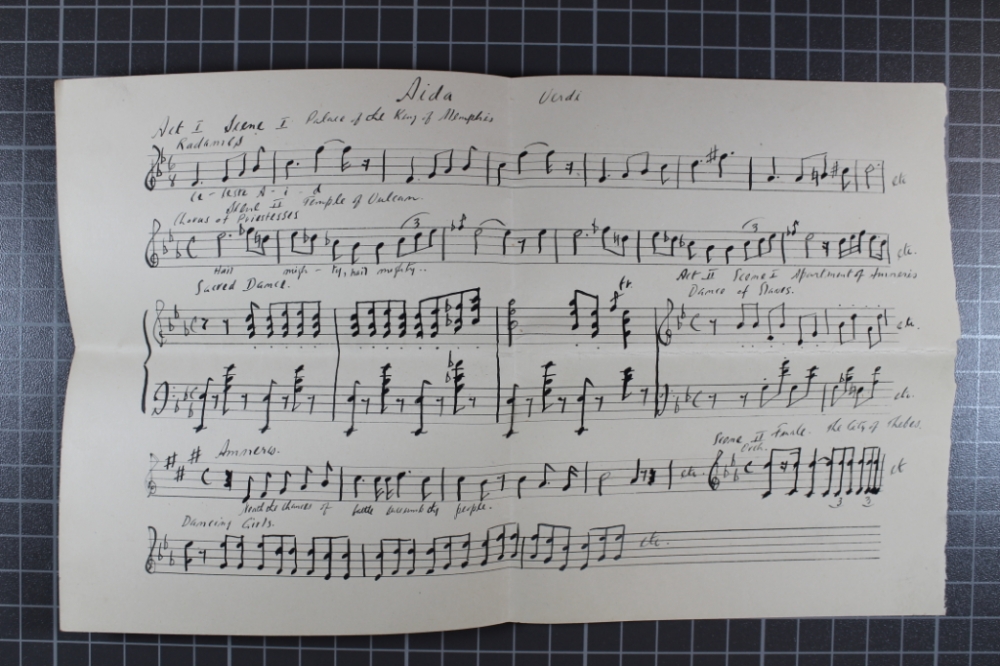 Aida Verdi
Act I Scene I Palace of the King of Memphis
Radames
Ce - leste A - i - d
Scene II Temple of Vulcan.
Chorus of Priestesses
etc
Hail migh - ty, hail mighty..
etc.
Sacred Dance.
Act II Scene I Apartment of Amneris
Dance of Slaves.
3
3
tr.
etc.
etc.
Scene II Finale. The City of Thebes.
Amneris.
Orch.
etc.
etc
3
3
of people.
Dancing Girls.
etc.